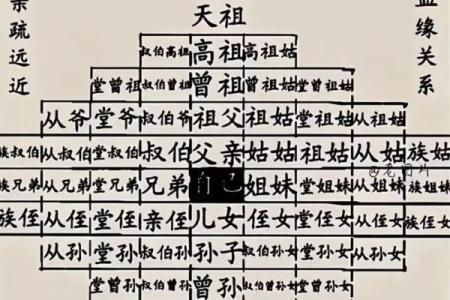 亲疏远近
天祖
血缘关系
叔伯高祖 高祖 高祖姑
堂曾祖 叔伯曾祖 曾祖 曾祖姑 堂曾祖姑
从爷 堂爷 叔伯爷 祖父 祖姑 堂祖姑 从祖姑
族叔伯 从叔伯 堂叔伯 叔伯 父亲 姑姑 祖姑 从姑 族姑
族兄弟 从兄弟 堂兄弟 兄弟 自己 姐妹 堂姐妹 从姐妹 族姐妹
族侄 从侄 堂侄 亲侄 儿女 侄女 堂侄女 从侄女 族侄女
从孙 堂孙 叔伯孙 孙子 叔伯孙女 堂孙女 从孙女
堂曾孙 叔伯曾孙 曾孙 叔伯曾孙女 堂曾孙女